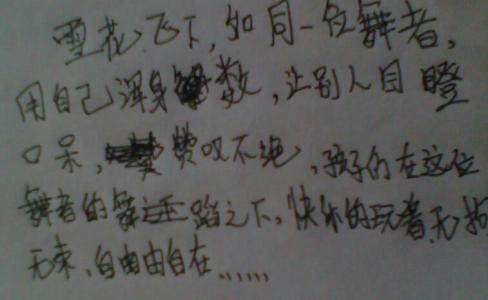 雪花飞下，如同一位舞者，
用自己浑身数，让别人目瞪
口呆，赞叹不绝，孩子们在这位
舞者的舞蹈之下，快乐的玩着，无拘
无束，自由由自在……